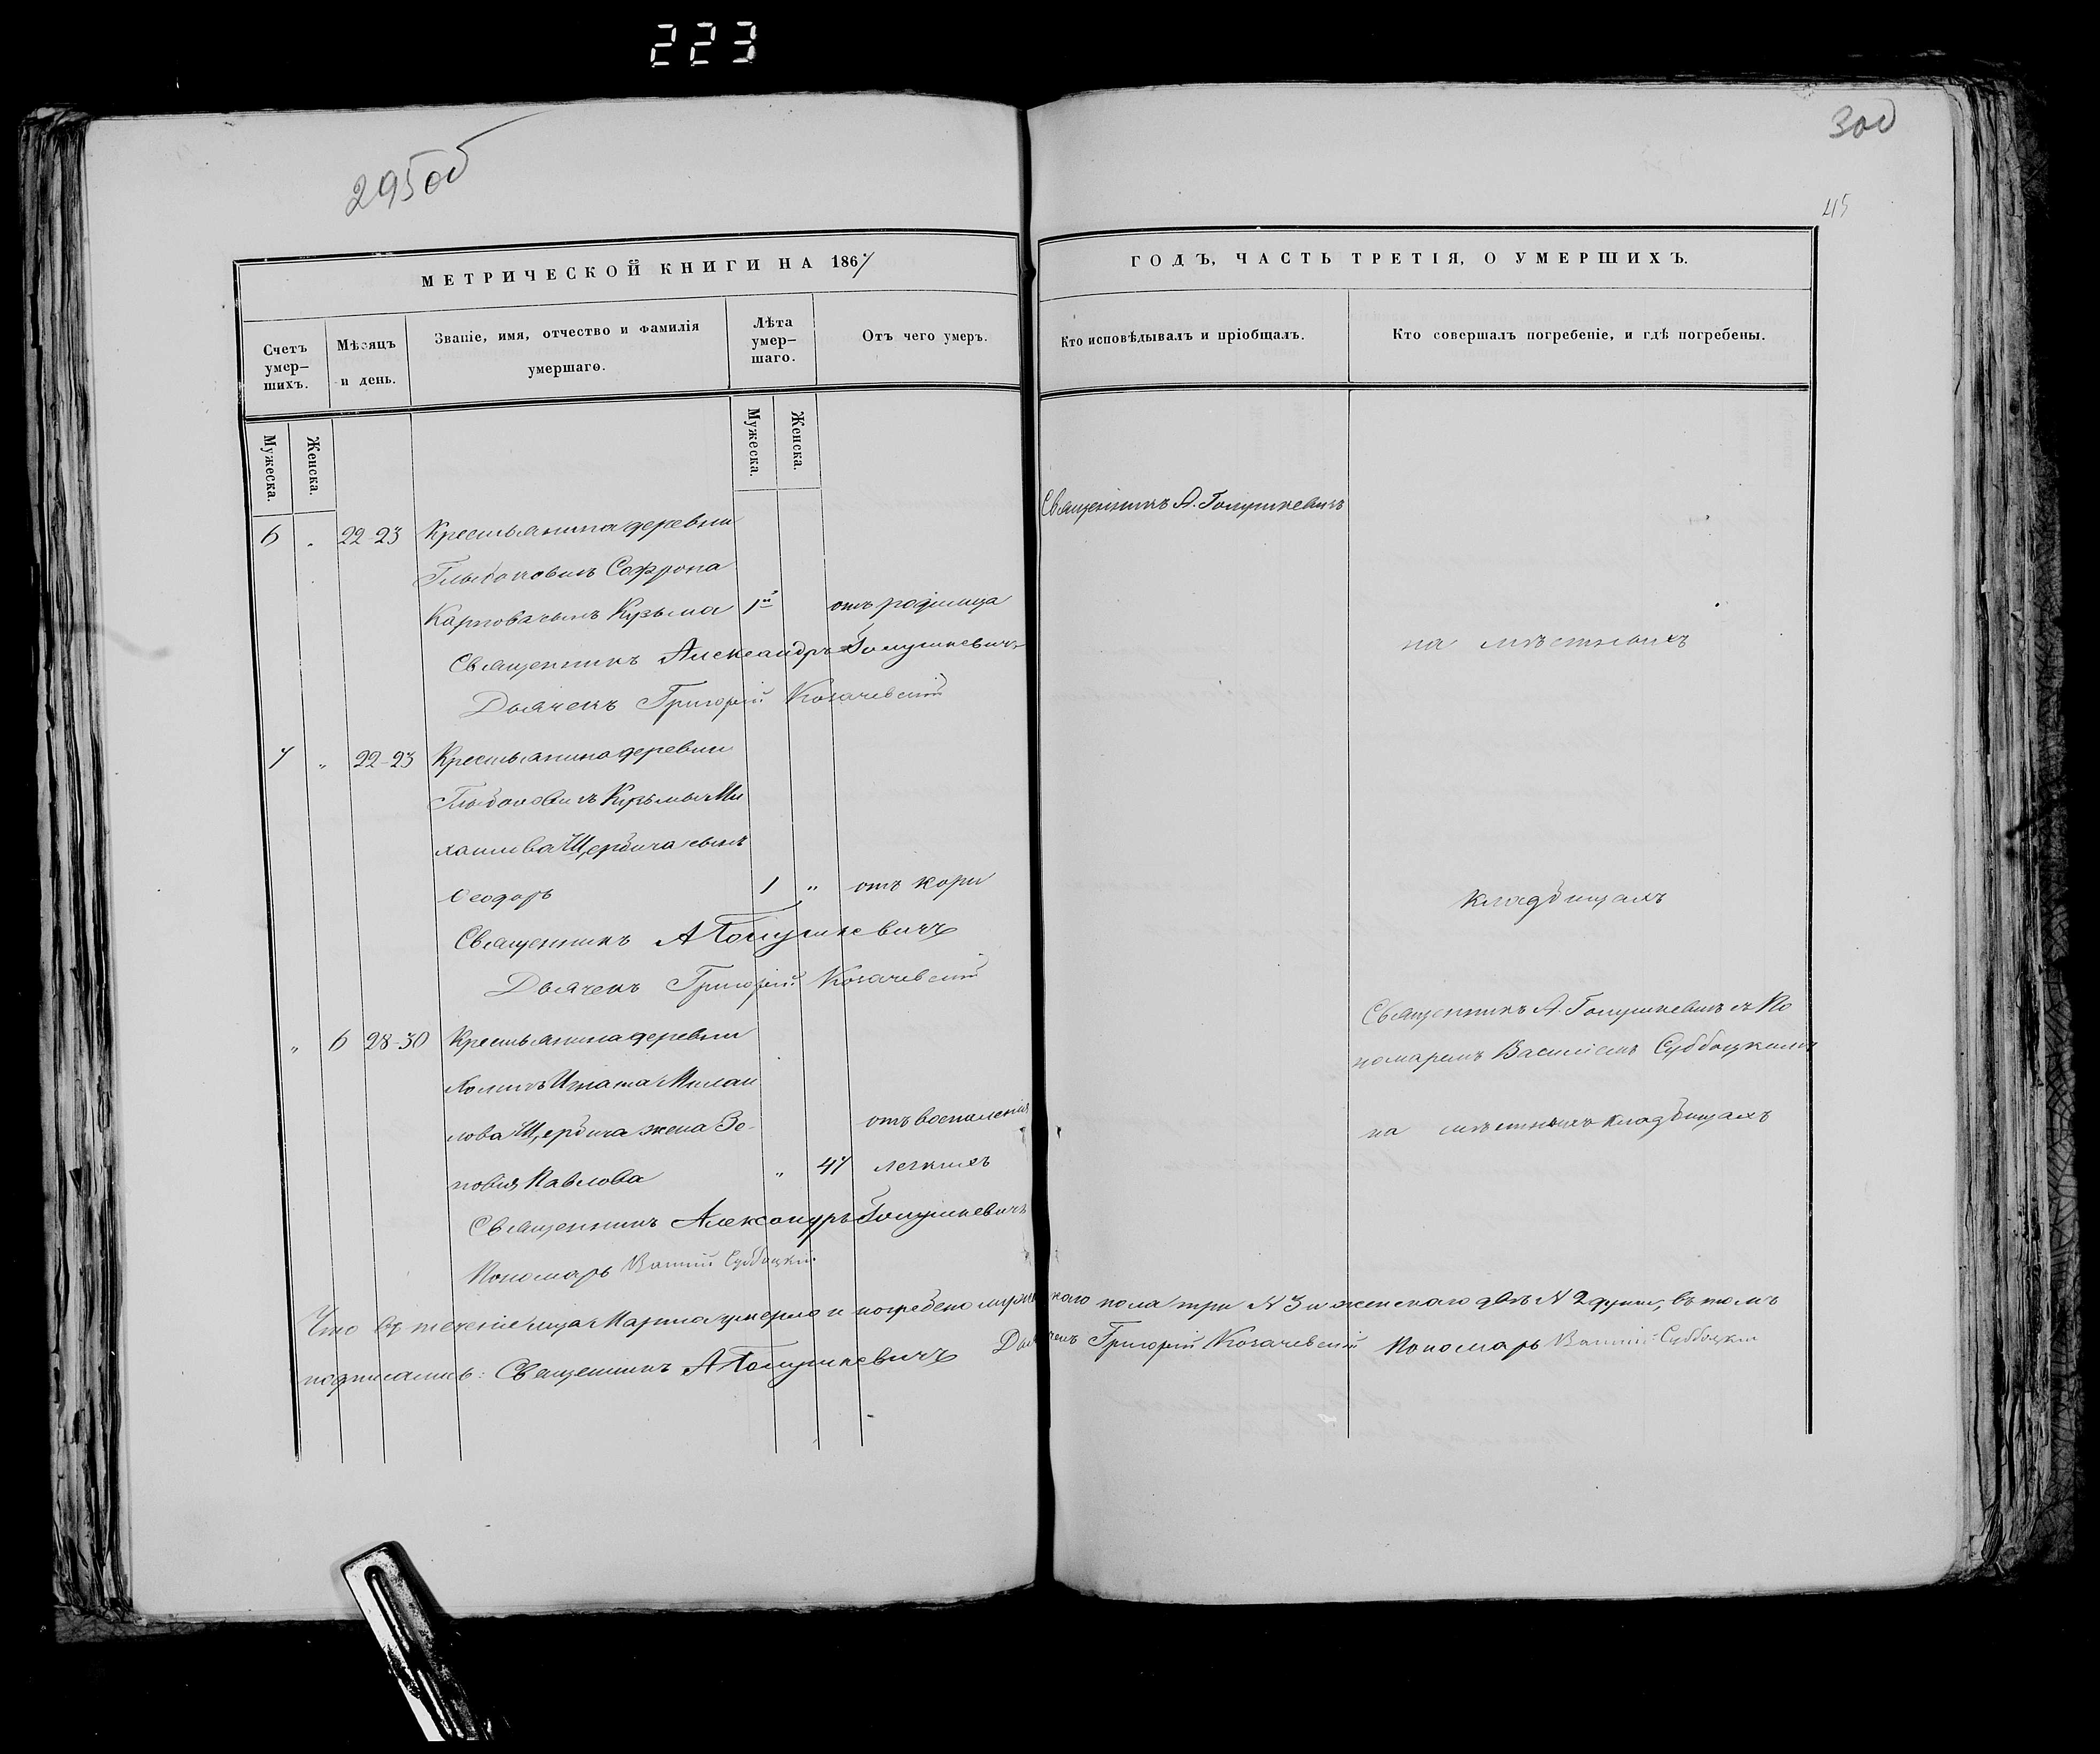 223
295 об
300
45
МЕТРИЧЕСКОЙ КНИГИ НА 1867
ГОДЪ, ЧАСТЬ ТРЕТІЯ, О УМЕРШИХЪ.
Счетъ умер–шихъ.
Мѣсяцъ и день.
Званіе, имя, отчество и фамилія умершаго.
Лѣта умер–шаго.
Отъ чего умеръ.
Кто исповѣдывалъ и пріобщалъ.
Кто совершалъ погребеніе, и гдѣ погребены.
Мужеска.
Женска.
Мужеска.
Женска.
Священникъ А. Голушкевичъ
6 „ 22-23 Крестьянина деревни
Софрона
Карпова сынъ Кузьма 1 отъ родимца
на мѣстныхъ
Священникъ Александръ Голушкевичъ
Дьячекъ Григорій Козачевскій
7 „ 22-23 Крестьянина деревни
Кузьмы Ми
хаилова Щербича сынъ
Ѳеодоръ 1 „ отъ кори
кладбищахъ
Священникъ А Голушкевичъ
Дьячекъ Григорій Козачевскій
„ 6 28-30 Крестьянина деревни
Священникъ А. Голушкевичъ съ По
номаремъ Василіемъ Субботцкимъ
Холмичъ Игната Михаи
лова Щербича жена Зе-
отъ воспаленія
на мѣстныхъ кладбищахъ
новия Павлова „ 47 легкихъ
Священникъ Александръ Голушкевичъ
Пономарь Василій Субботцкій
Что въ теченіе м-ца Марта умерло и погребено мужескаго пола три № 3 и женскаго двѣ № 2 души, въ томъ
подписались: Священникъ А Голушкевичъ Дьячекъ Григорій Козачевскій Пономарь Василій Субботцкій